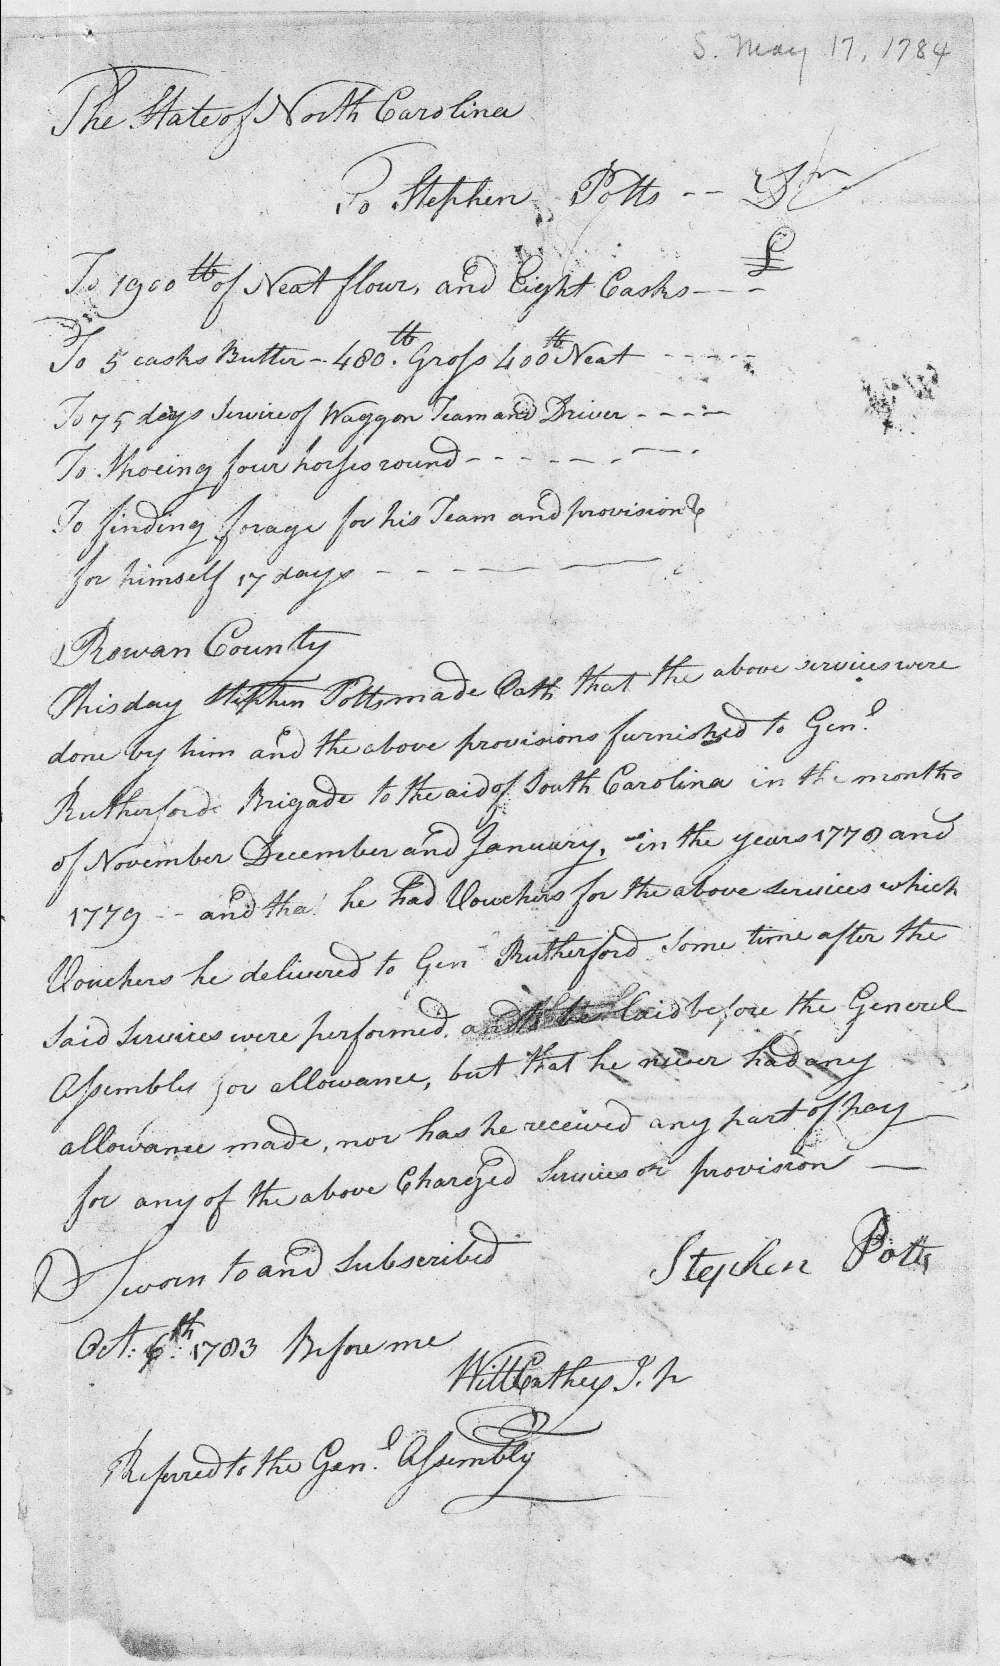 S. May 17, 1784
The State of North Carolina
To Stephen Potts -- Dr
£
To 1900 lb of Neat flour, and Eight Casks ---
To 5 casks Butter - 480 lb. Gross 400 lb Neat -----
To 75 days Service of Waggon Team and Driver ----
To Shoeing four horses round -------
To finding forage for his Team and provision &
for himself 17 days ------
Rowan County
This day Stephen Potts made Oath that the above services were
done by him and the above provisions furnished to Genl.
Rutherfords Brigade to the aid of South Carolina in the months
of November December and January, in the years 1778 and
1779 -- and that he had Vouchers for the above services which
Vouchers he delivered to Gen Rutherford some time after the
said services were performed. and to be laid before the General
Assembly for allowance, but that he never had any
allowance made, nor has he received any part of pay
for any of the above Charged Services or provision —
Sworn to and subscribed
Stephen Potts
Oct. 6th. 1783 Before me
Will Cathey J. P
Referred to the Genl. Assembly